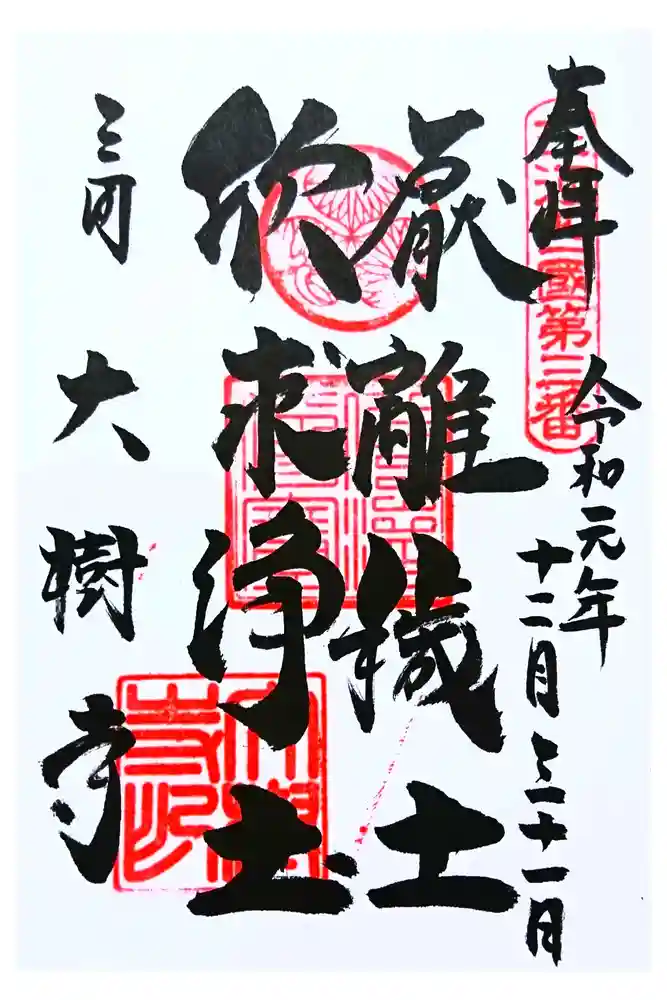 奉拝
國第三番
令和元年
十二月三十一日
厭離穢土
欣求浄土
三河
大樹寺